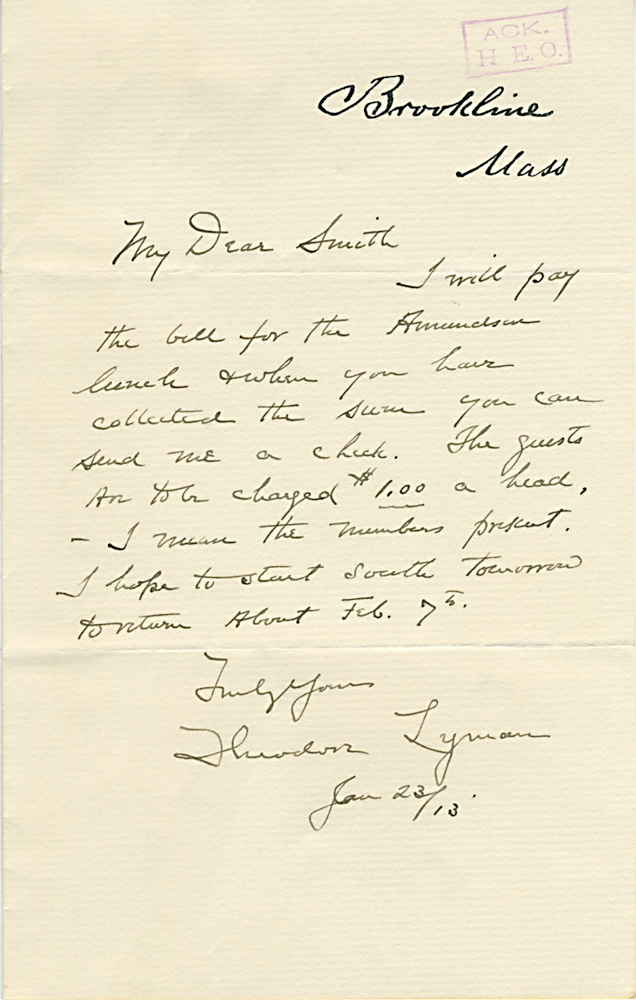 ACK.
H E.O.
Brookline
Mass
My Dear Smith
I will pay
the bill for the Amundsen
lunch & when you have
collected the sum you can
send me a check. The guests
are to be charged $1.00 a head,
- I mean the members present.
I hope to start South tomorrow
to return About Feb. 7th.
Truly Yours
Theodore Lyman
Jan 23/13